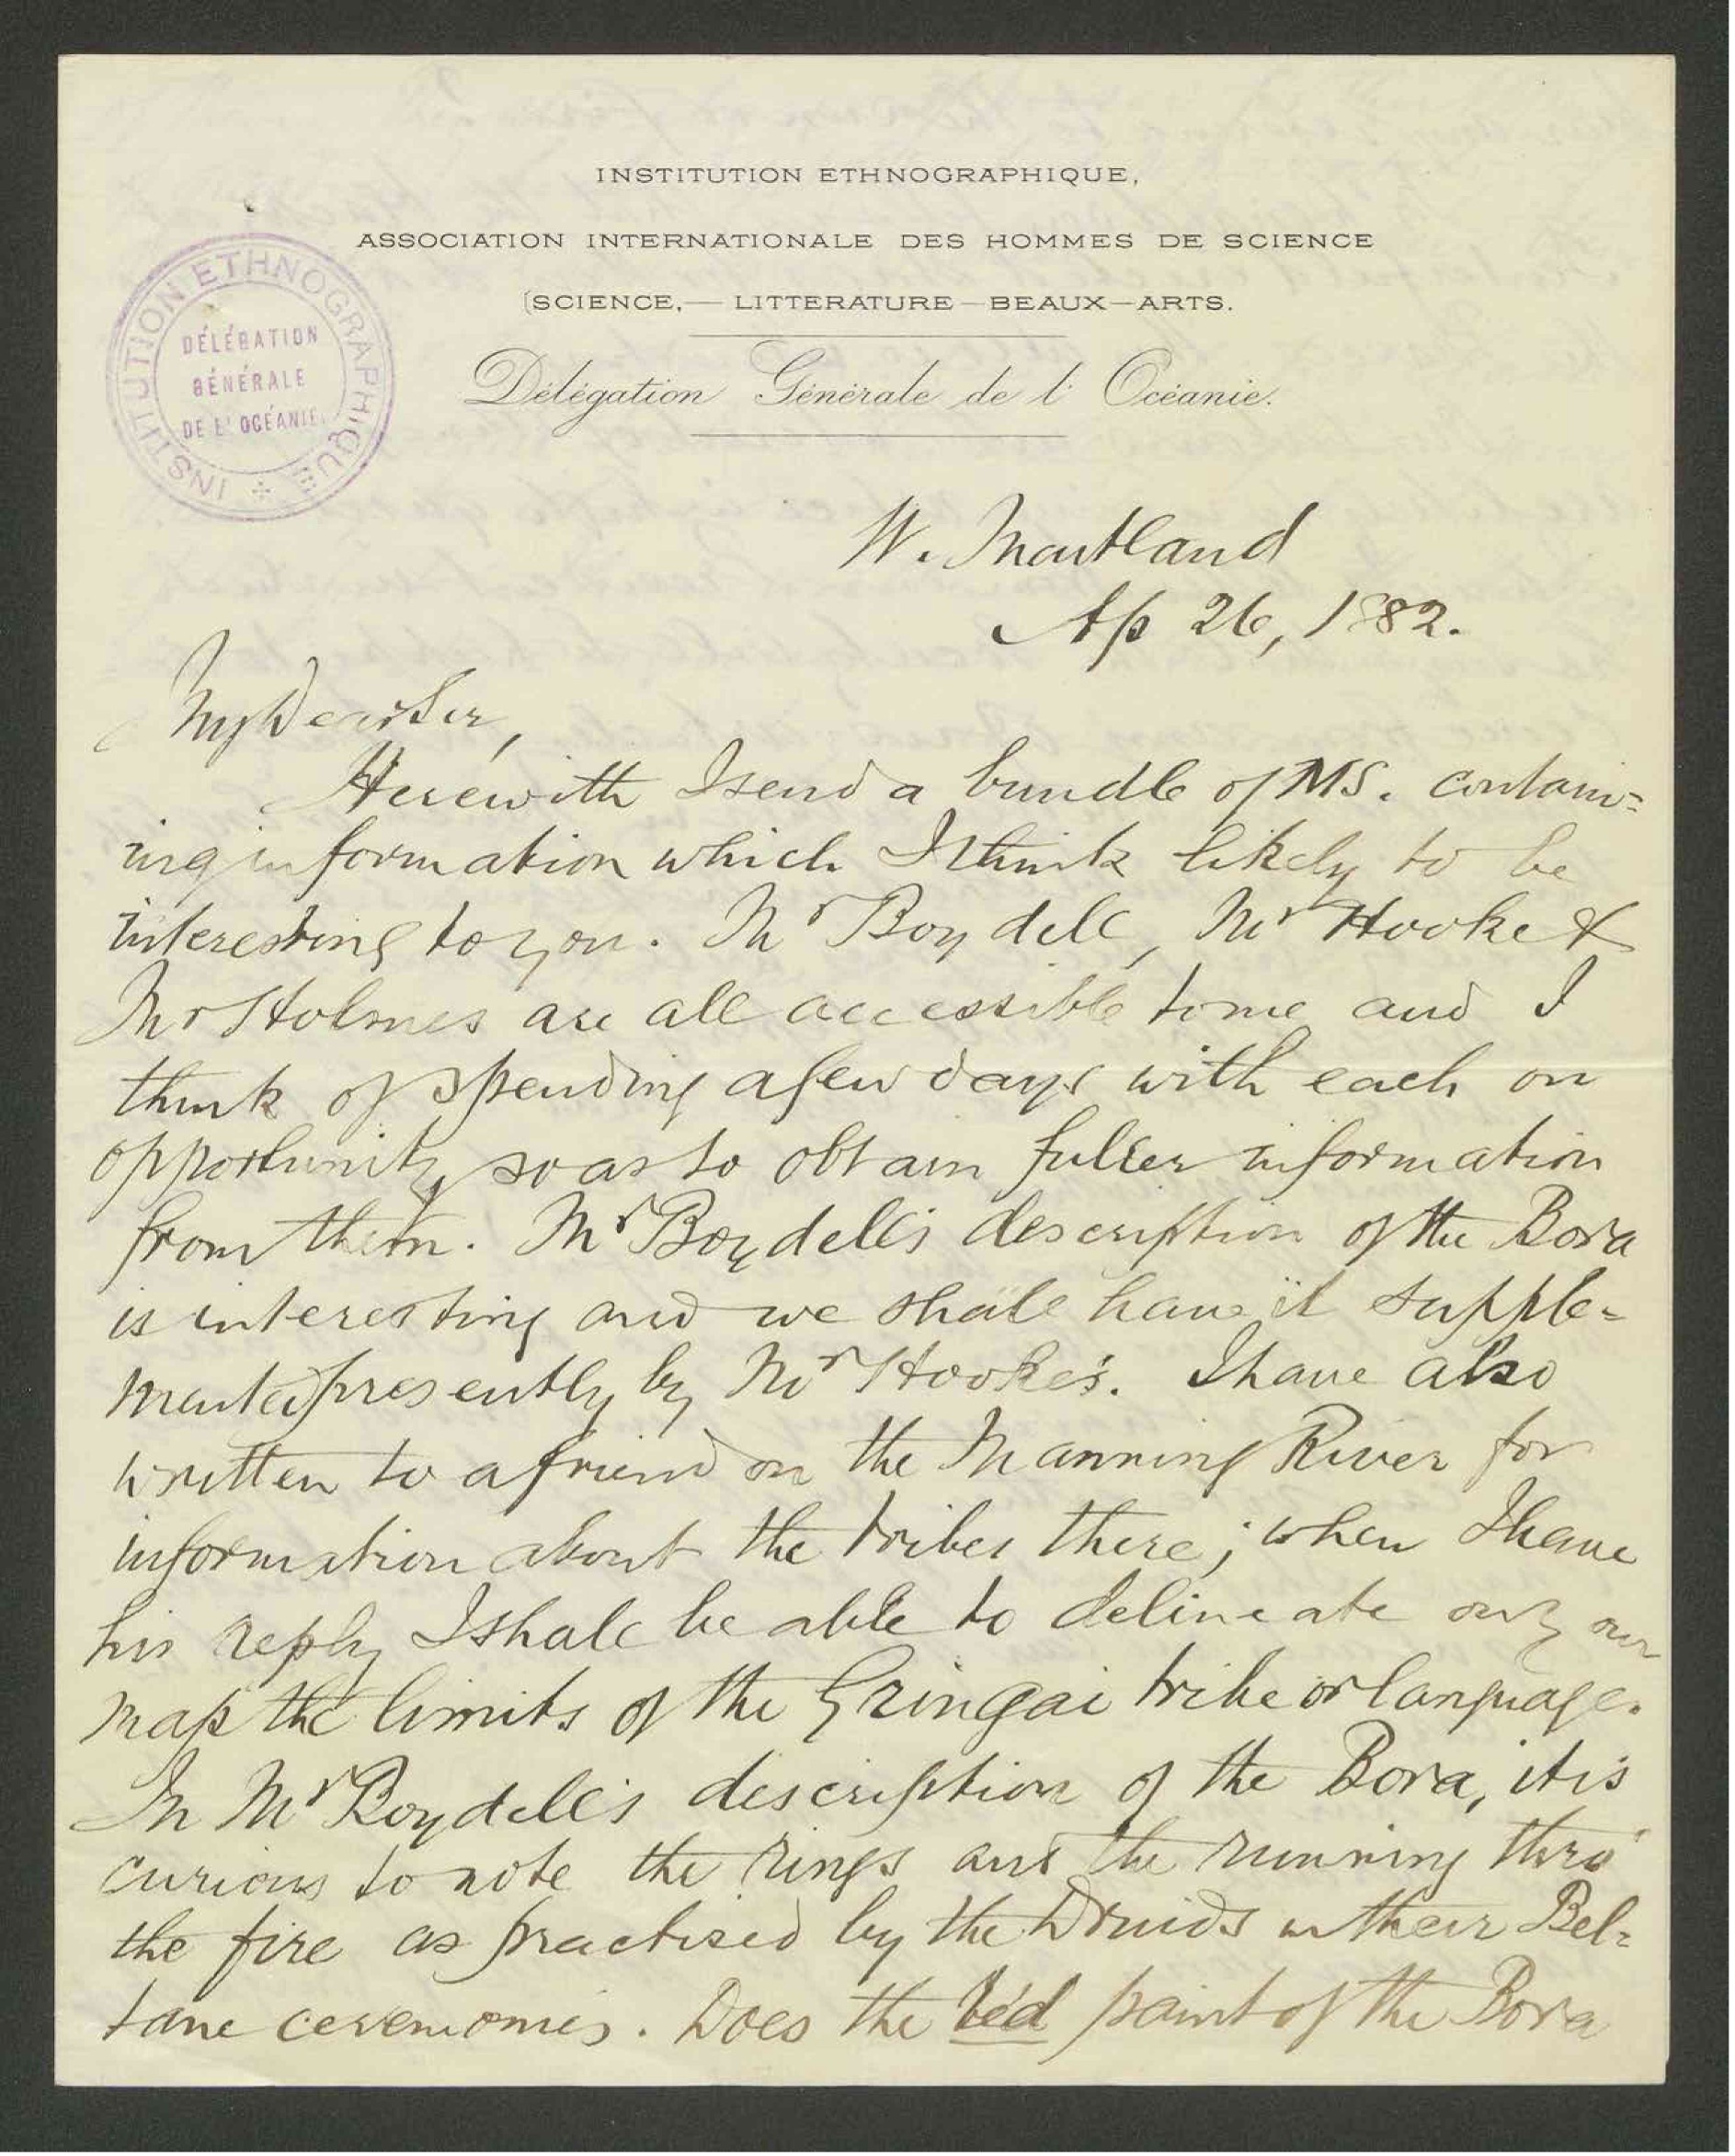 INSTITUTION ETHNOGRAPHIQUE,
ASSOCIATION INTERNATIONALE DES HOMMES DE SCIENCE
(SCIENCE,— LITTERATURE—BEAUX—ARTS.
Délégation Générale de l' Océanie.
INSTITUTION ETHNOGRAPHIQUE
DÉLÉGATION
GÉNÉRALE
DE L'OCÉANIE.
W. Maitland
Ap 26, 1882.
My Dear Sir,
Herewith I send a bundle of MS. contain=
ing information which I think likely to be
interesting to you. Mr Boydell, Mr Hooke &
Mr Holmes are all accessible to me and I
think of spending a few days with each on
opportunity so as to obtain fuller information
from them. Mr Boydell's description of the Bora
is interesting and we shall have it supple=
mented presently by Mr Hooke's. I have also
written to a friend on the Manning River for
information about the tribes there; when I have
his reply I shall be able to delineate on
map the limits of the Gringai tribe or language.
In Mr Boydell's description of the Bora, it is
curious to note the rings and the running thro'
the fire as practised by the Druids in their Bel=
tane ceremonies. Does the red paint of the Bora